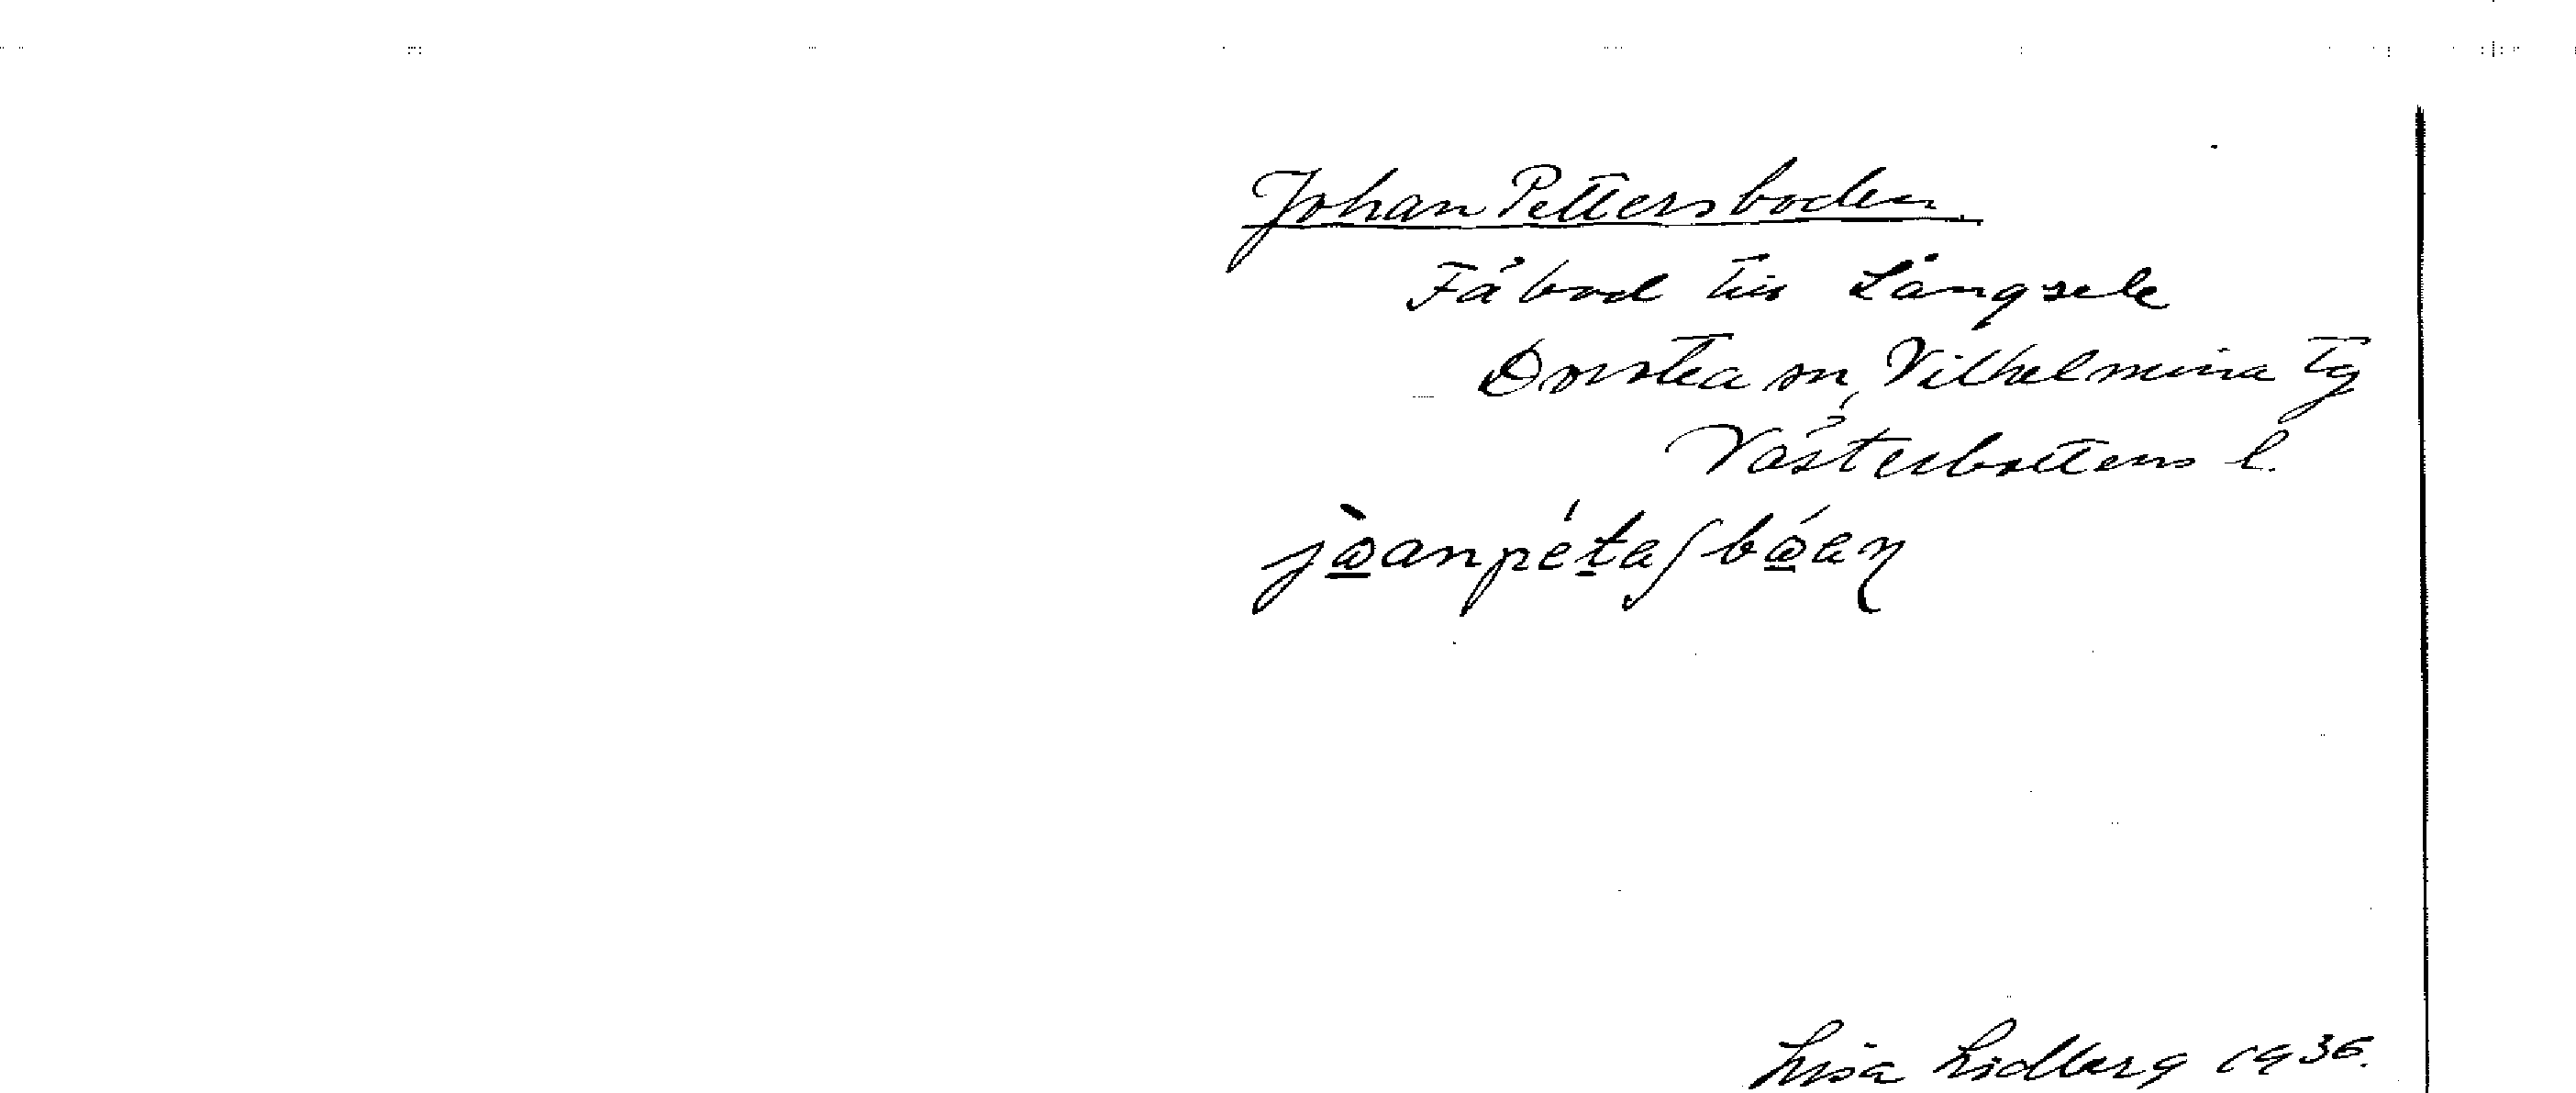 Johan Pettersboden
Fäbod till Långsele
Dorotea sn, Vilhelmina tg
Västerbottens l.
Lisa Lidberg 1936.